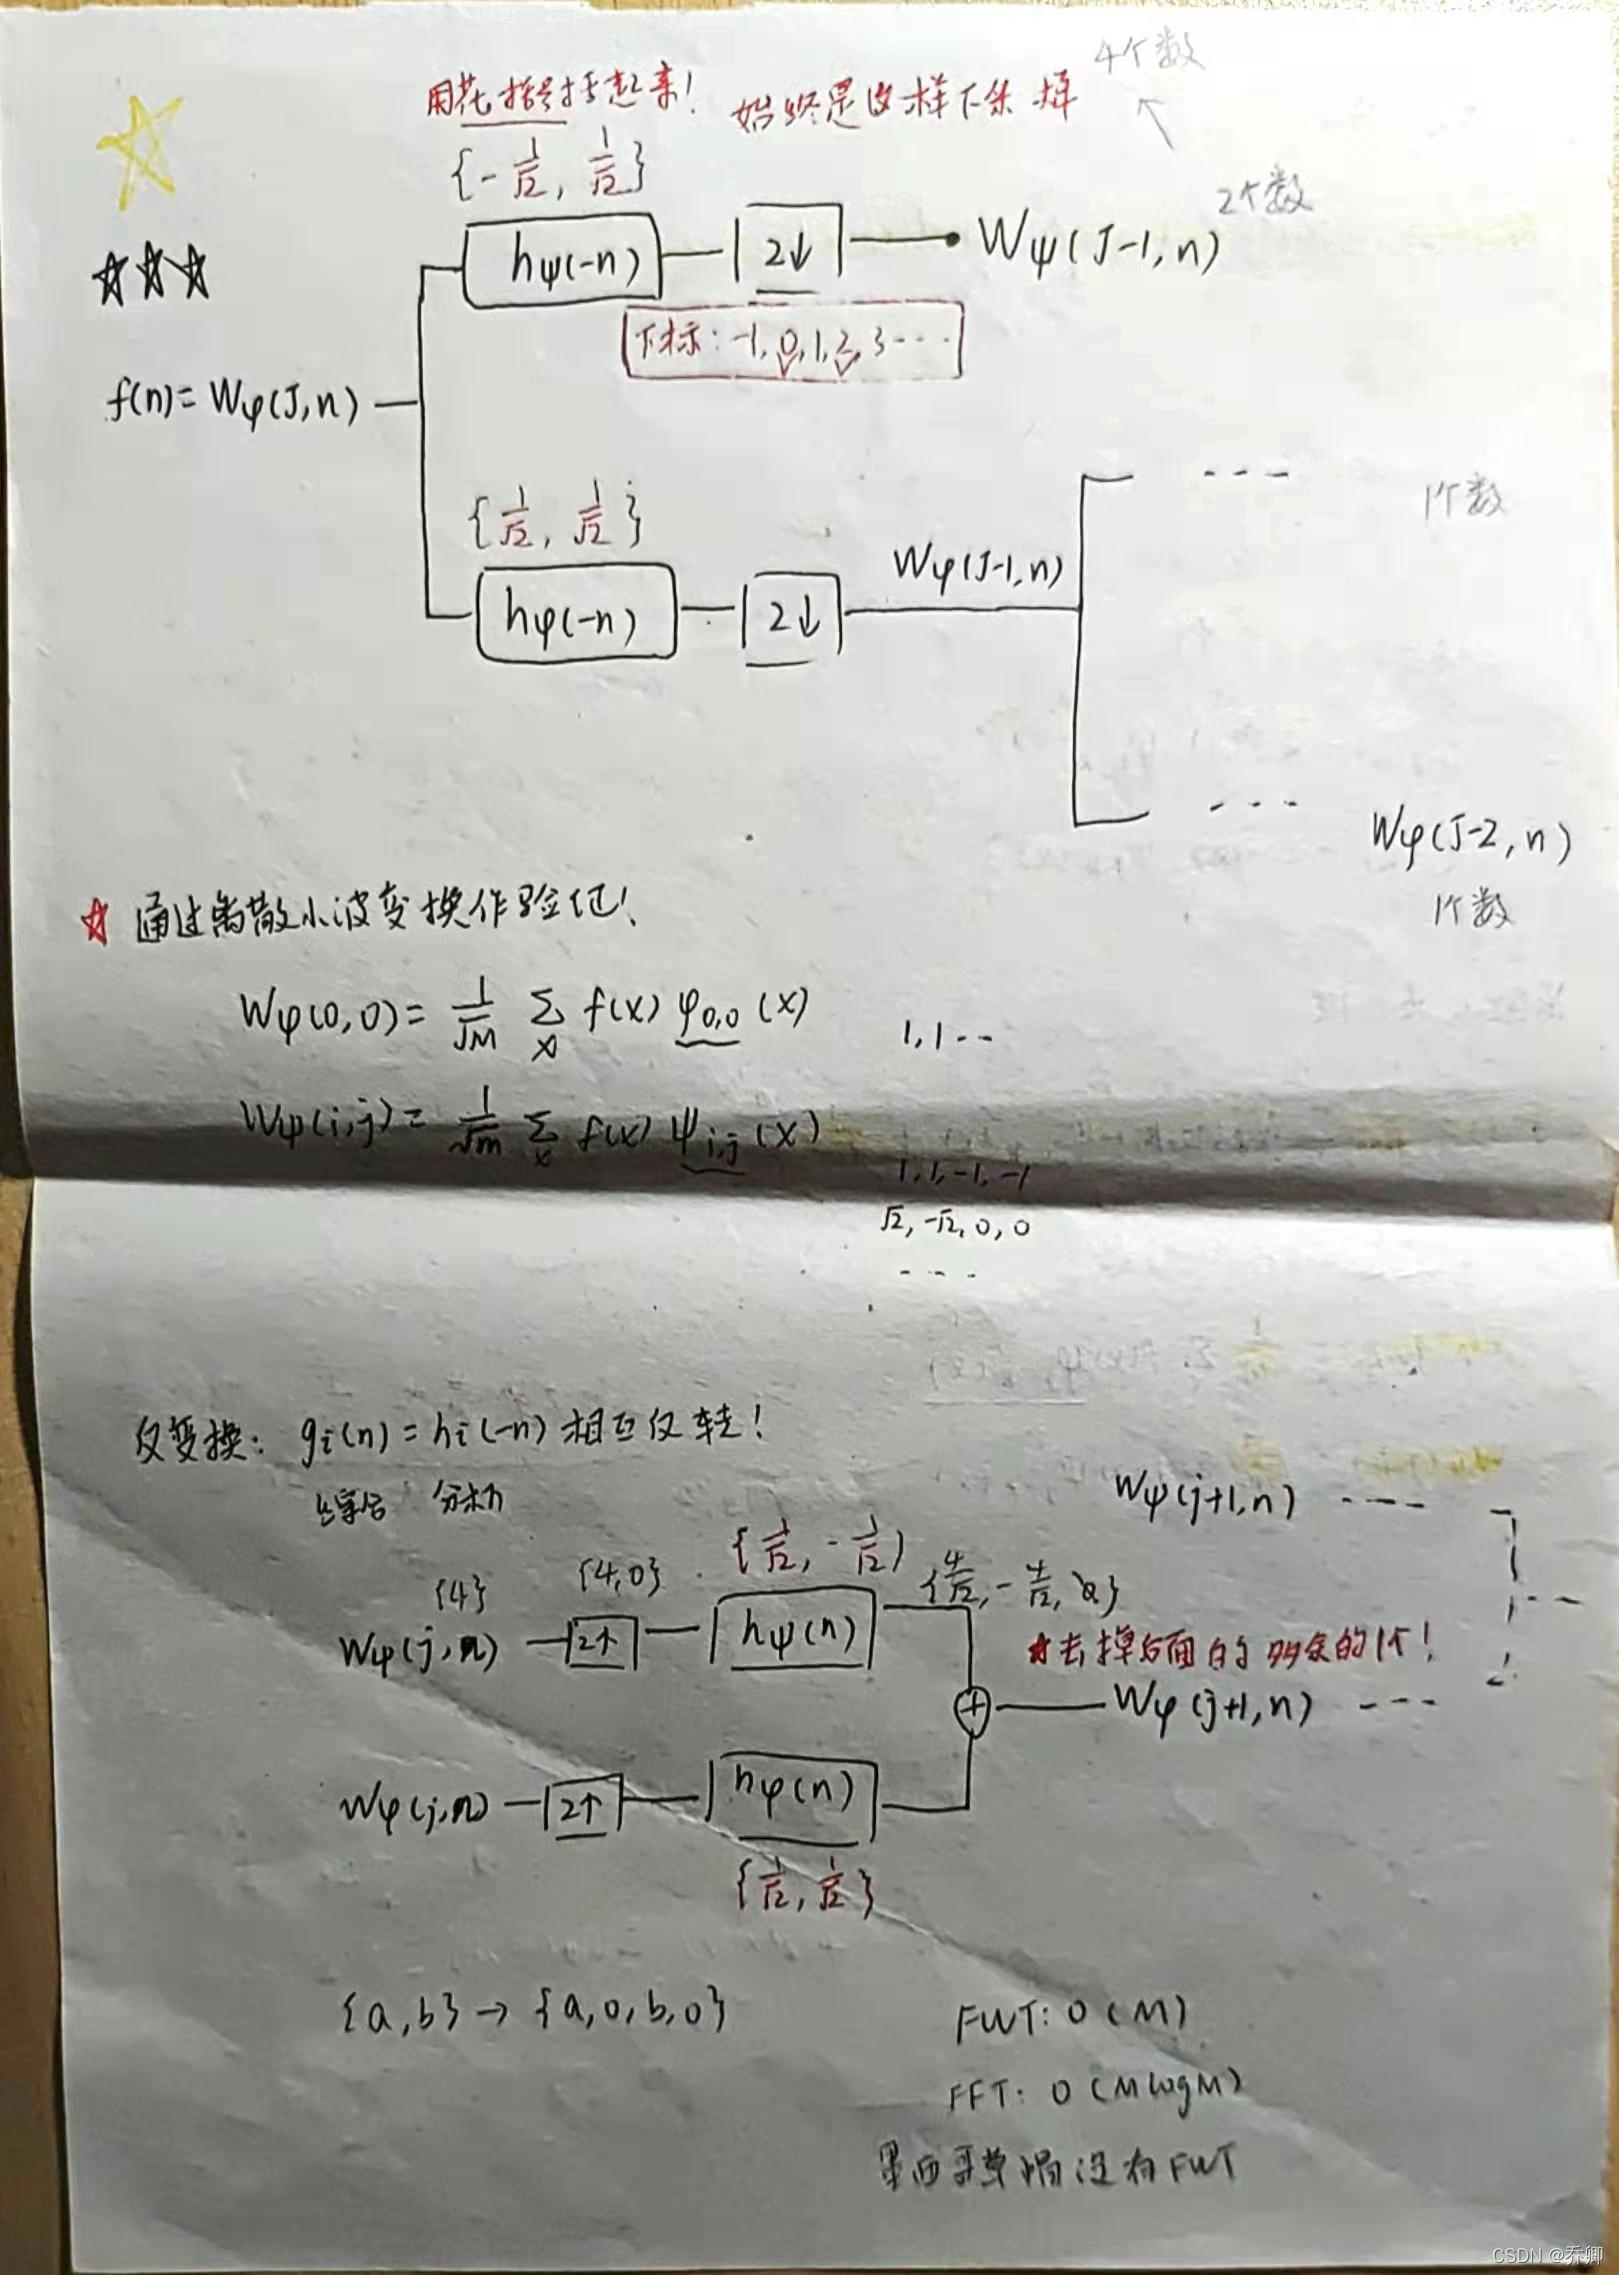 用花括号括起来! 始终是这样下采样 4个数
{-1/√2, 1/√2} 2个数
hψ(-n) 2↓ Wψ(J-1,n)
下标: -1, 0, 1, 2, 3 ···
f(n)= Wφ(J,n)
--- 1个数
{1/√2, 1/√2}
hφ(-n) 2↓ Wφ(J-1,n)
---
Wφ(J-2,n)
1个数
通过离散小波变换作验证!
Wφ(0,0)= 1/√M Σx f(x) φ0,0 (x) 1,1 --
Wψ(i,j)= 1/√m Σx f(x) ψi,j (x)
1,1,-1,-1
√2, -√2, 0, 0
---
反变换: gi(n) = hi(-n) 相互反转!
综合 分析
Wψ(j+1,n) ----
{4} {4,0} {1/√2, -1/√2} {4/√2, -4/√2, 0}
Wψ(j,n) 2↑ hψ(n)
去掉后面的多余的1个!
+ Wφ(j+1,n) ---
Wφ(j,n) 2↑ hφ(n)
{1/√2, 1/√2}
{a,b} → {a,0,b,0}
FWT: O(M)
FFT: O(MlogM)
墨西哥草帽没有FWT
CSDN @乔卿